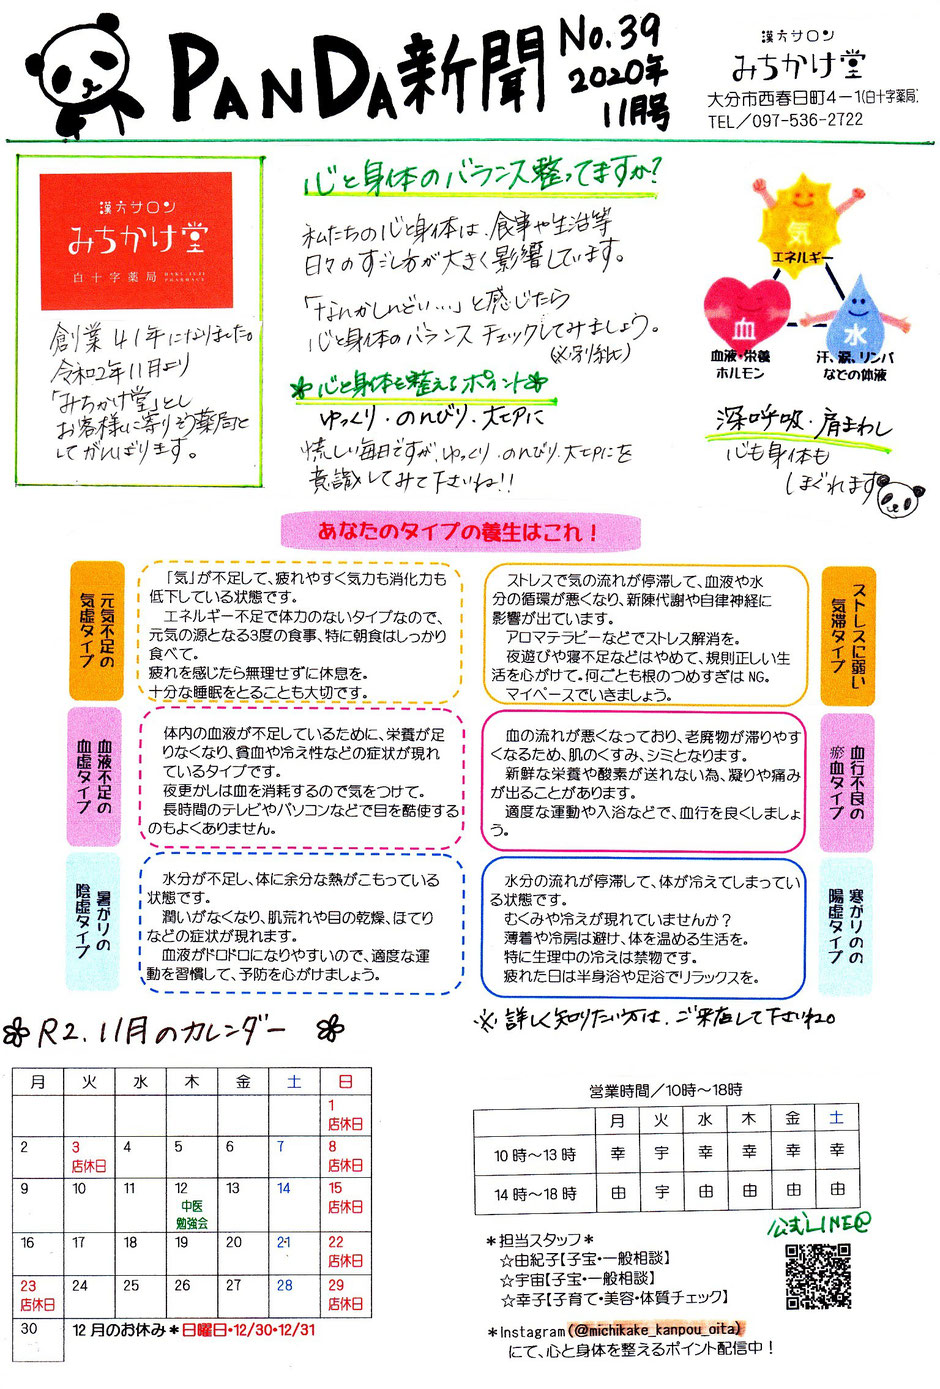 PANDA新聞
No.39
2020年
11月号
漢方サロン
みちかけ堂
大分市西春日町4-1(白十字薬局)
TEL/097-536-2722
漢方サロン
みちかけ堂
白十字薬局
創業41年になりました。
令和2年11月より
「みちかけ堂」とし
お客様に寄りそう薬局と
してがんばります。
心と身体のバランス整ってますか?
私たちの心と身体は、食事や生活等
日々のすごし方が大きく影響しています。
「なんかしんどい…」と感じたら
心と身体のバランスチェックしてみましょう。
(※別紙)
心と身体を整えるポイント
ゆっくり・のんびり・大切に
慌しい毎日ですが、ゆっくり・のんびり・大切にを
意識してみて下さいね!!
気
エネルギー
血
血液・栄養
ホルモン
水
汗、涙、リンパ
などの体液
深呼吸・肩まわし
心も身体も
ほぐれます
あなたのタイプの養生はこれ！
元気不足の
気虚タイプ
「気」が不足して、疲れやすく気力も消化力も
低下している状態です。
エネルギー不足で体力のないタイプなので、
元気の源となる3度の食事、特に朝食はしっかり
食べて。
疲れを感じたら無理せずに休息を。
十分な睡眠をとることも大切です。
ストレスで気の流れが停滞して、血液や水
分の循環が悪くなり、新陳代謝や自律神経に
影響が出ています。
アロマテラピーなどでストレス解消を。
夜遊びや寝不足などはやめて、規則正しい生
活を心がけて。何ごとも根のつめすぎはNG。
マイペースでいきましょう。
ストレスに弱い
気滞タイプ
血液不足の
血虚タイプ
体内の血液が不足しているために、栄養が足
りなくなり、貧血や冷え性などの症状が現れ
ているタイプです。
夜更かしは血を消耗するので気をつけて。
長時間のテレビやパソコンなどで目を酷使する
のもよくありません。
血の流れが悪くなっており、老廃物が滞りやす
くなるため、肌のくすみ、シミとなります。
新鮮な栄養や酸素が送れない為、凝りや痛み
が出ることがあります。
適度な運動や入浴などで、血行を良くしましょ
う。
血行不良の
瘀血タイプ
暑がりの
陰虚タイプ
水分が不足し、体に余分な熱がこもっている
状態です。
潤いがなくなり、肌荒れや目の乾燥、ほてり
などの症状が現れます。
血液がドロドロになりやすいので、適度な運
動を習慣して、予防を心がけましょう。
水分の流れが停滞して、体が冷えてしまってい
る状態です。
むくみや冷えが現れていませんか？
薄着や冷房は避け、体を温める生活を。
特に生理中の冷えは禁物です。
疲れた日は半身浴や足浴でリラックスを。
寒がりのの
陽虚タイプ
※詳しく知りたい方は、ご来店して下さいね。
R2.11月のカレンダー
月 火 水 木 金 土 日
1
店休日
2 3 4 5 6 7 8
店休日 店休日
9 10 11 12 13 14 15
中医
勉強会
店休日
16 17 18 19 20 21 22
店休日
23 24 25 26 27 28 29
店休日 店休日
30 12月のお休み＊日曜日・12/30・12/31
営業時間/10時～18時
月 火 水 木 金 土
10時～13時 幸 宇 幸 幸 幸 幸
14時～18時 由 宇 由 由 由 由
公式LINE@
＊担当スタッフ＊
☆由紀子【子宝・一般相談】
☆宇宙【子宝・一般相談】
☆幸子【子育て・美容・体質チェック】
＊Instagram(@michikake_kanpou_oita)
にて、心と身体を整えるポイント配信中！